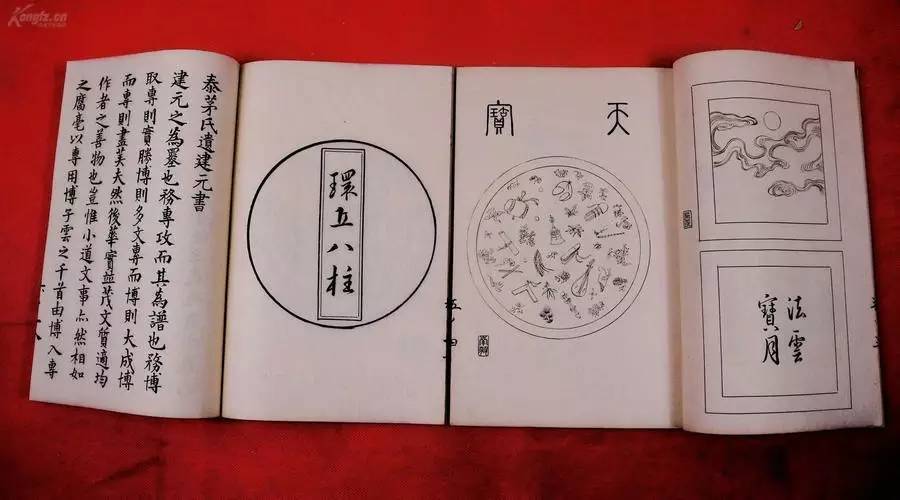 Kongfz.cn
泰茅氏遺建元書
建元之為墨也務專攻而其為譜也務博
取專則實勝博則多文專而博則大成博
而專則盡美夫然後華實並茂文質適均
作者之善物也豈惟小道文事亦然相如
之腐毫以專用博子雲之千首由博入專
環立八柱
天寶
法雲
寶月